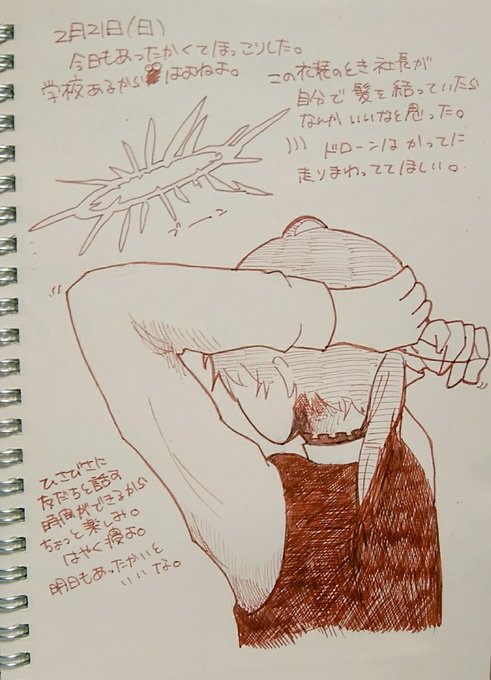 2月21日(日)
今日もあったかくてほっこりした。
学校あるから はよねよ。
この衣装のとき社長が
自分で髪を結っていたら
なんかいいなと思った。
))) ドローンはかってに
走りまわっててほしい。
ブーン
ひさびさに
友だちと話す
時間ができるから
ちょっと楽しみ。
はやく寝よ。
明日もあったかいと
いいな。